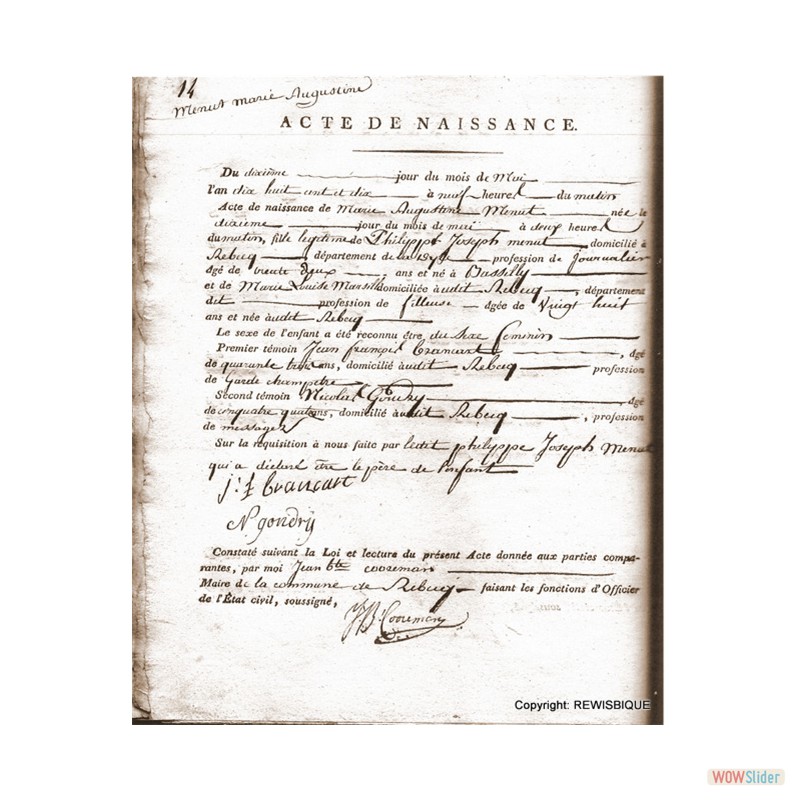 14
Menut marie Augustine
ACTE DE NAISSANCE.
Du dixième jour du mois de Mai
l'an dix huit cent et dix à neuf heures du matin
Acte de naissance de Marie Augustine Menut née le
dixieme jour du mois de mai à deux heures
du matin, fille legitime de Philippe Joseph menut, domicilié à
Rebecq, département de la dyle profession de journalier
âgé de trente deux, ans et né à Bassilly
et de Marie Louise domiciliée à audit Rebecq, département
dit profession de fileuse âgée de Vingt huit
ans et née audit Rebecq
Le sexe de l'enfant a été reconnu être du sexe feminin
Premier témoin Jean françois brancart, âgé
de quarante trois ans, domicilié à audit Rebecq profession
de Garde champetre
Second témoin Nicolas Gondry âgé
de cinquante quatre ans, domicilié à audit Rebecq, profession
de messager
Sur la réquisition à nous faite par ledit philippe Joseph Menut
qui a déclaré être le père de l'enfant
j: f brancart
N. gondry
Constaté suivant la Loi et lecture du présent Acte donnée aux parties compa-
rantes, par moi Jean bte cooreman
Maire de la commune de Rebecq faisant les fonctions d'Officier
de l'État civil, soussigné,
JB Cooreman
Copyright: REWISBIQUE
WOWSlider